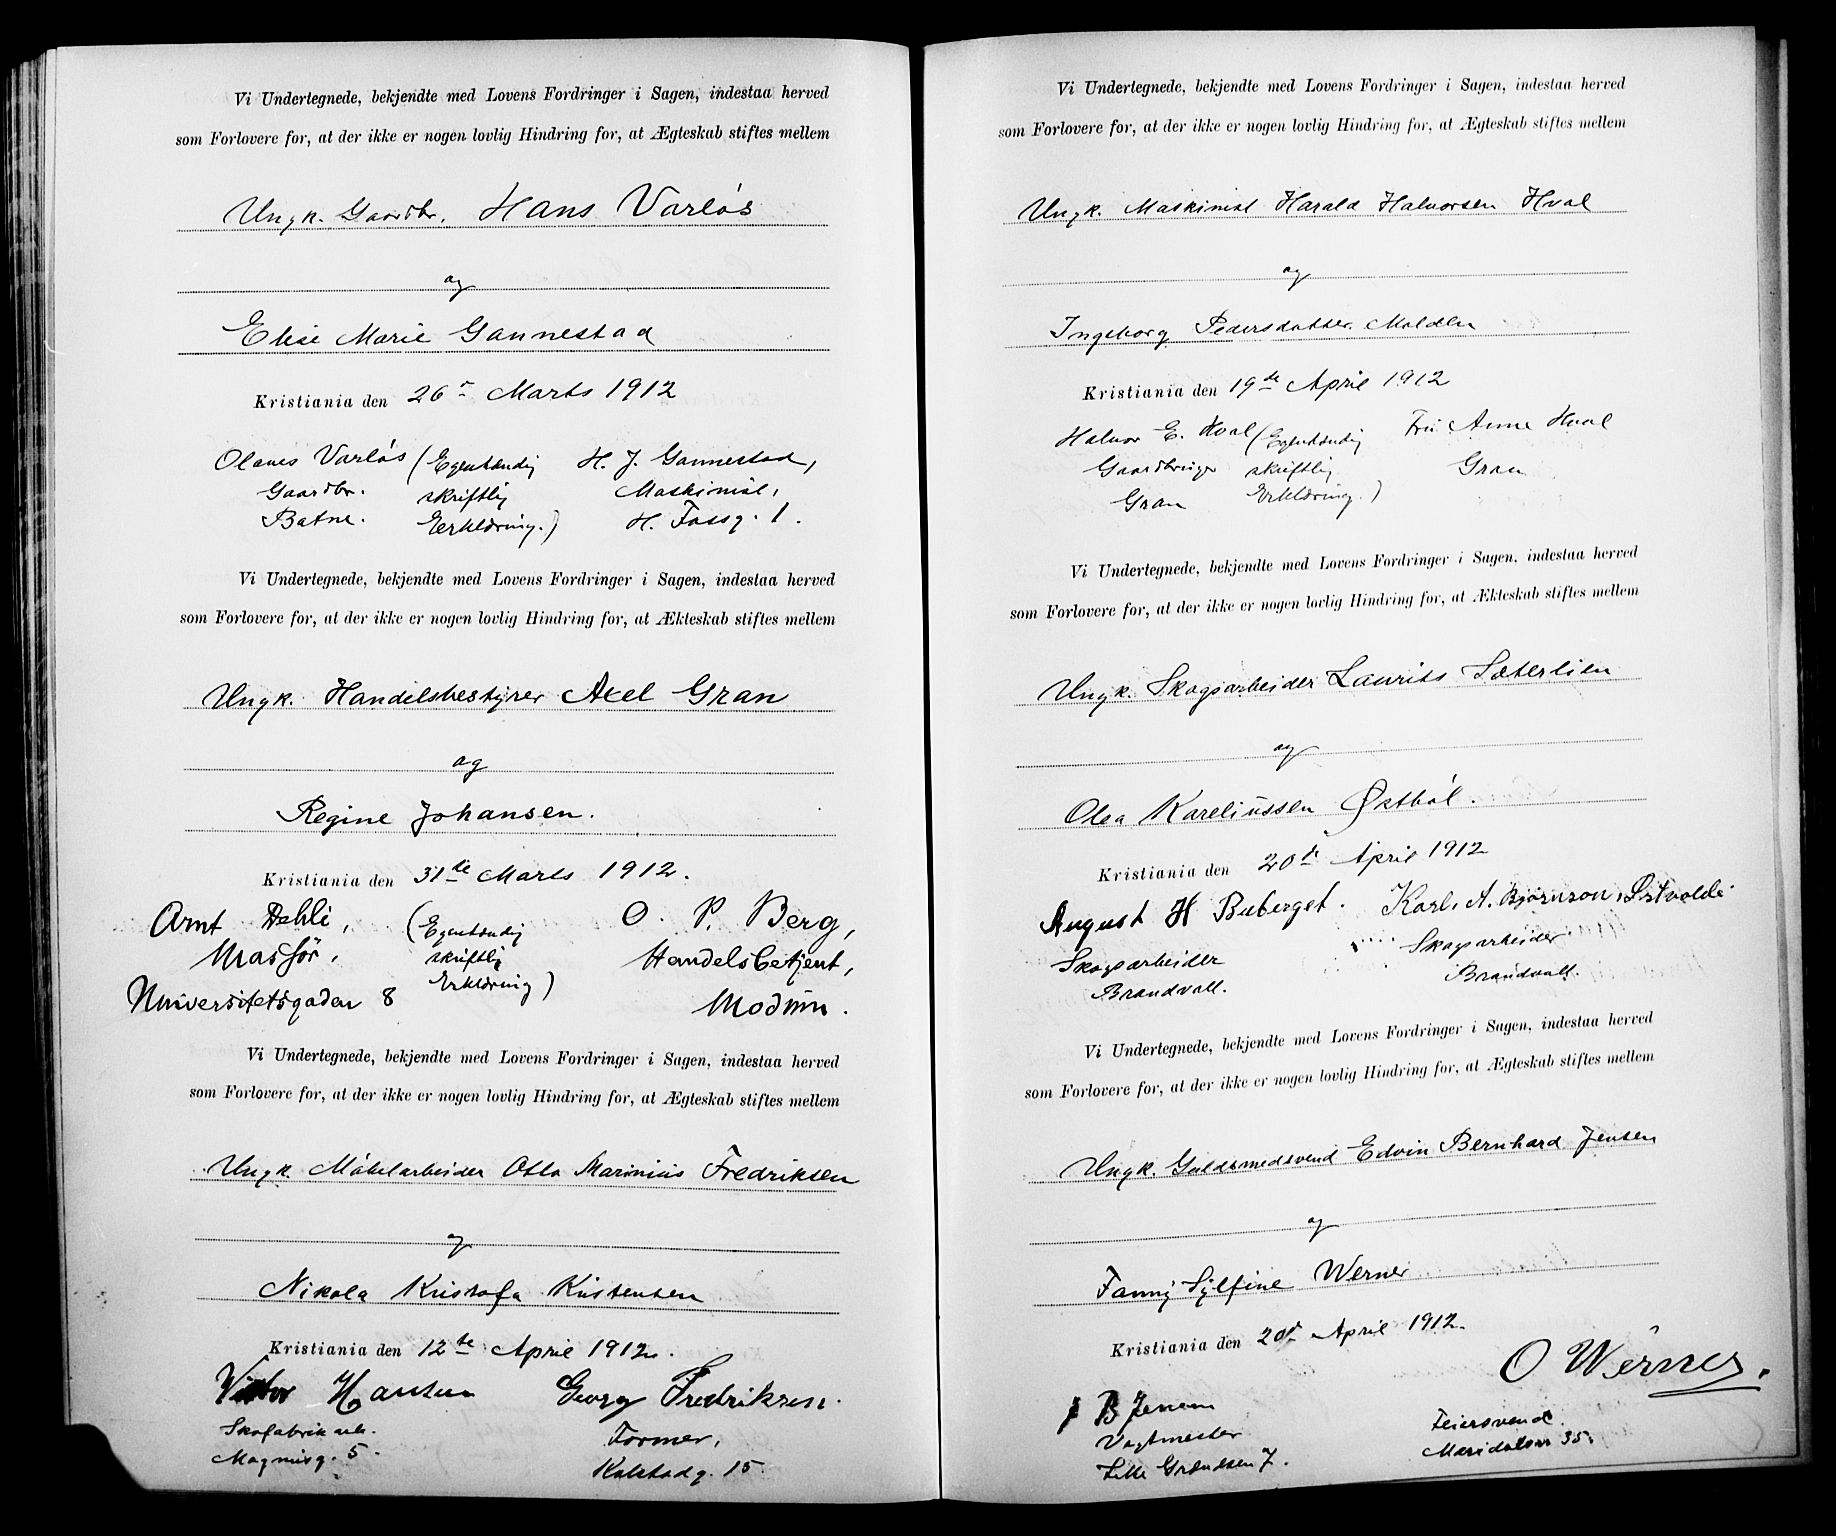 Vi Undertegnede, bekjendte med Lovens Fordringer i Sagen, indestaa herved
som Forlovere for, at der ikke er nogen lovlig Hindring for, at Ægteskab stiftes mellem
Ungk. Gaardbr. Hans Varløs
og
Elise Marie Gannestad
Kristiania den 26 Marts 1912
Olaves Varløs (Egenhændig H. J. Gannestad,
Gaardbr. skriftlig Maskinist,
Batne. Eerklæring.) H. Fossg. 1.
Vi Undertegnede, bekjendte med Lovens Fordringer i Sagen, indestaa herved
som Forlovere for, at der ikke er nogen lovlig Hindring for, at Ækteskab stiftes mellem
Ungk. Handelsbestyrer Axel Gran
og
Regine Johansen.
Kristiania den 31te Marts 1912.
Arnt Dehli, (Egenhændig O. P. Berg,
Massør, skriftlig Handelsbetjent,
Universitetsgaden 8 Erklæring) Modum.
Vi Undertegnede, bekjendte med Lovens Fordringer i Sagen, indestaa herved
som Forlovere for, at der ikke er nogen lovlig Hindring for, at Ægteskab stiftes mellem
Ungk. Møbelarbeider Otto Marinius Fredriksen
og
Nikola Kristofa Kristensen
Kristiania den 12te April 1912.
Viktor Hansen Georg Fredriksen.
Skofabrikarb. Former,
Magnusg. 5. Kalstadg. 15.
Vi Undertegnede, bekjendte med Lovens Fordringer i Sagen, indestaa herved
som Forlovere for, at der ikke er nogen lovlig Hindring for, at Ægteskab stiftes mellem
Ungk. Maskinist Harald Halvorsen Hval
og
Ingeborg Pedersdatter Molden
Kristiania den 19de April 1912
Halvor E. Hval (Egenhændig Fru Anne Hval
Gaardbruger skriftlig Gran
Gran Erklæring.)
Vi Undertegnede, bekjendte med Lovens Fordringer i Sagen, indestaa herved
som Forlovere for, at der ikke er nogen lovlig Hindring for, at Ækteskab stiftes mellem
Ungk. Skogsarbeider Laurits Sæterlien
og
Olea Kareliussen Østbøl.
Kristiania den 20de April 1912
August H Buberget. Karl. A. Bjørnson,
Skogsarbeider Skogsarbeider
Brandvall. Brandvall.
Vi Undertegnede, bekjendte med Lovens Fordringer i Sagen, indestaa herved
som Forlovere for, at der ikke er nogen lovlig Hindring for, at Ægteskab stiftes mellem
Ungk. Guldsmedsvend Edvin Bernhard Jensen
og
Fanny Sylfine Werner
Kristiania den 20de April 1912.
O Werner.
B Jensen Feiersvend.
Vagtmester Maridalsvn 35.
Lille Grændsen 7.